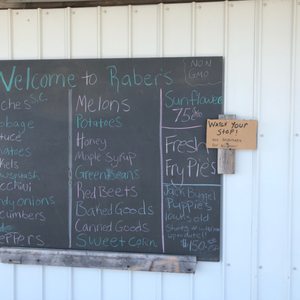 Welcome to Raber's
NON
GMO
ches
bage
tuce
atoes
kets
cchini
dy onions
cumbers
eppers
Melons
Potatoes
Honey
Maple Syrup
Green Beans
Red Beets
Baked Goods
Canned Goods
Sweet Corn
Sunflower
75¢
Fresh
Fry Pie's
Jack
Puppie's
$150.
Watch Your
Step!